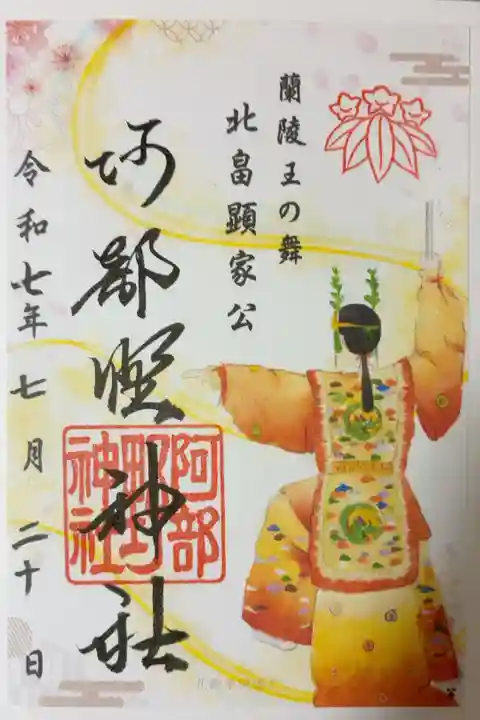 蘭陵王の舞
北畠顕家公
阿部野神社
阿部野神社
令和七年七月二十日